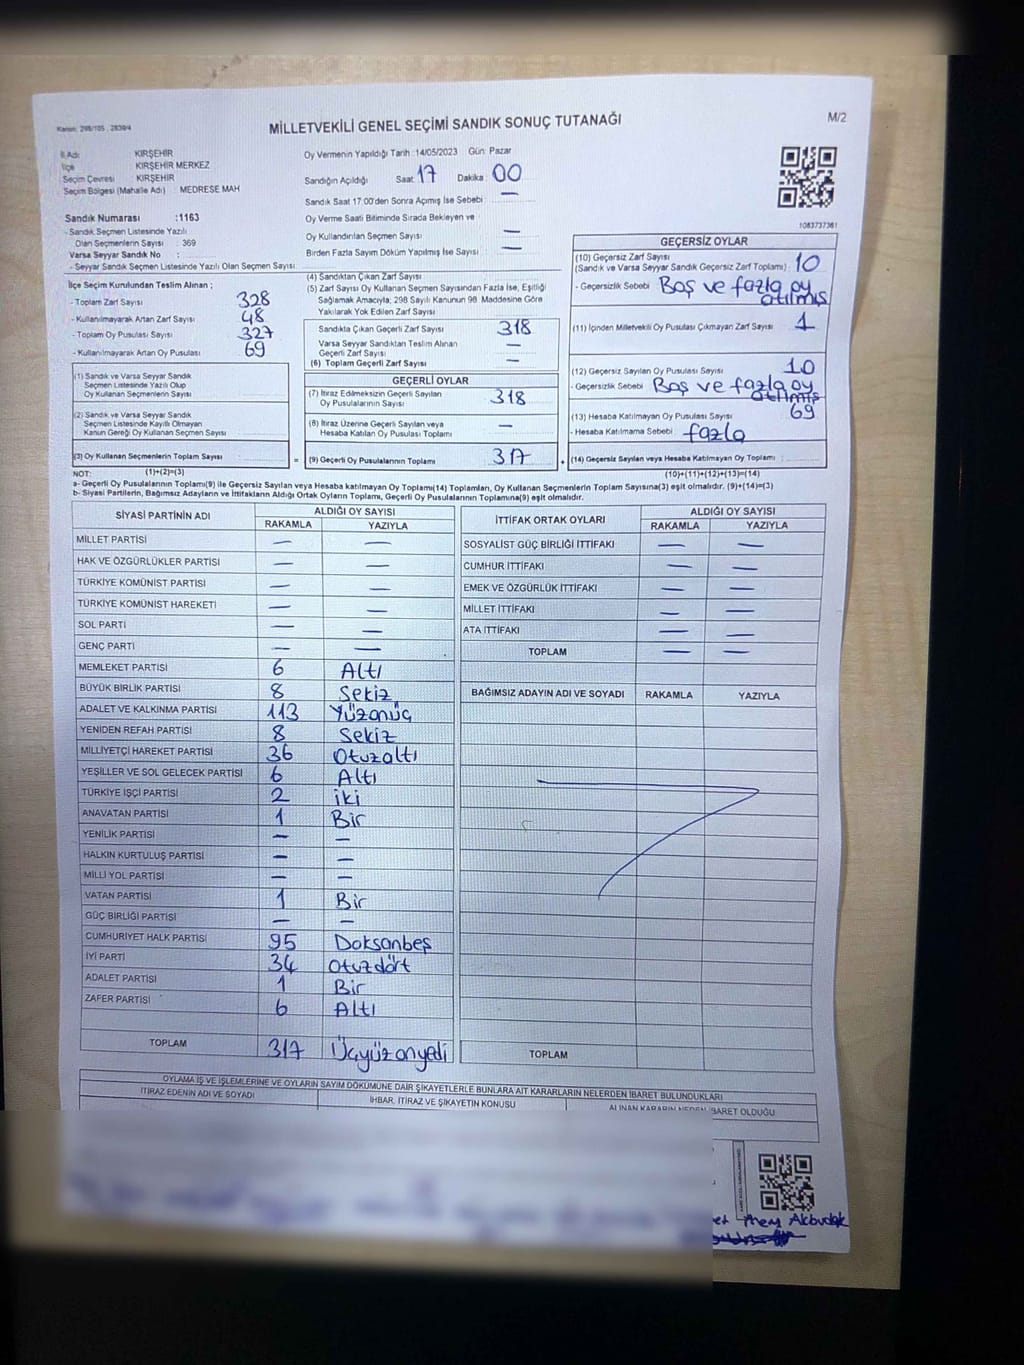 Kanun: 298/105 , 2839/4
MİLLETVEKİLİ GENEL SEÇİMİ SANDIK SONUÇ TUTANAĞI
M/2
İl Adı KIRŞEHİR
İlçe KIRŞEHİR MERKEZ
Seçim Çevresi KIRŞEHİR
Seçim Bölgesi (Mahalle Adı) MEDRESE MAH
Oy Vermenin Yapıldığı Tarih :14/05/2023 Gün: Pazar
Sandığın Açıldığı Saat 17 Dakika 00
Sandık Saat 17.00'den Sonra Açımış İse Sebebi —
Sandık Numarası :1163
- Sandık Seçmen Listesinde Yazılı
Olan Seçmenlerin Sayısı : 369
Varsa Seyyar Sandık No :
- Seyyar Sandık Seçmen Listesinde Yazılı Olan Seçmen Sayısı
Oy Verme Saati Bitiminde Sırada Bekleyen ve
Oy Kullandırılan Seçmen Sayısı —
Birden Fazla Sayım Döküm Yapılmış İse Sayısı —
1083737361
İlçe Seçim Kurulundan Teslim Alınan ;
- Toplam Zarf Sayısı 328
- Kullanılmayarak Artan Zarf Sayısı 48
- Toplam Oy Pusulası Sayısı 327
- Kullanılmayarak Artan Oy Pusulası 69
(1) Sandık ve Varsa Seyyar Sandık
Seçmen Listesinde Yazılı Olup
Oy Kullanan Seçmenlerin Sayısı
(2) Sandık ve Varsa Seyyar Sandık
Seçmen Listesinde Kayıtlı Olmayan
Kanun Gereği Oy Kullanan Seçmen Sayısı
(3) Oy Kullanan Seçmenlerin Toplam Sayısı
(4) Sandıktan Çıkan Zarf Sayısı
(5) Zarf Sayısı Oy Kullanan Seçmen Sayısından Fazla İse, Eşitliği
Sağlamak Amacıyla; 298 Sayılı Kanunun 98. Maddesine Göre
Yakılarak Yok Edilen Zarf Sayısı
Sandıkta Çıkan Geçerli Zarf Sayısı 318
Varsa Seyyar Sandıktan Teslim Alınan
Geçerli Zarf Sayısı —
(6) Toplam Geçerli Zarf Sayısı —
GEÇERLİ OYLAR
(7) İtiraz Edilmeksizin Geçerli Sayılan
Oy Pusulalarının Sayısı 318
(8) İtiraz Üzerine Geçerli Sayılan veya
Hesaba Katılan Oy Pusulası Toplamı —
= (9) Geçerli Oy Pusulalarının Toplamı 317
GEÇERSİZ OYLAR
(10) Geçersiz Zarf Sayısı
(Sandık ve Varsa Seyyar Sandık Geçersiz Zarf Toplamı) 10
- Geçersizlik Sebebi Boş ve fazla oy
atılmış
(11) İçinden Milletvekili Oy Pusulası Çıkmayan Zarf Sayısı 1
(12) Geçersiz Sayılan Oy Pusulası Sayısı 10
- Geçersizlik Sebebi Boş ve fazla oy
atılmış
(13) Hesaba Katılmayan Oy Pusulası Sayısı 69
- Hesaba Katılmama Sebebi fazla
+ (14) Geçersiz Sayılan veya Hesaba Katılmayan Oy Toplamı
NOT: (1)+(2)=(3)
(10)+(11)+(12)+(13)=(14)
a- Geçerli Oy Pusulalarının Toplamı(9) ile Geçersiz Sayılan veya Hesaba katılmayan Oy Toplamı(14) Toplamları, Oy Kullanan Seçmenlerin Toplam Sayısına(3) eşit olmalıdır. (9)+(14)=(3)
b- Siyasi Partilerin, Bağımsız Adayların ve İttifakların Aldığı Ortak Oyların Toplamı, Geçerli Oy Pusulalarının Toplamına(9) eşit olmalıdır.
SİYASİ PARTİNİN ADI ALDIĞI OY SAYISI
RAKAMLA YAZIYLA
MİLLET PARTİSİ — —
HAK VE ÖZGÜRLÜKLER PARTİSİ — —
TÜRKİYE KOMÜNİST PARTİSİ — —
TÜRKİYE KOMÜNİST HAREKETİ — —
SOL PARTİ — —
GENÇ PARTİ — —
MEMLEKET PARTİSİ 6 Altı
BÜYÜK BİRLİK PARTİSİ 8 Sekiz
ADALET VE KALKINMA PARTİSİ 113 Yüzonüç
YENİDEN REFAH PARTİSİ 8 Sekiz
MİLLİYETÇİ HAREKET PARTİSİ 36 Otuzaltı
YEŞİLLER VE SOL GELECEK PARTİSİ 6 Altı
TÜRKİYE İŞÇİ PARTİSİ 2 iki
ANAVATAN PARTİSİ 1 Bir
YENİLİK PARTİSİ — —
HALKIN KURTULUŞ PARTİSİ — —
MİLLİ YOL PARTİSİ — —
VATAN PARTİSİ 1 Bir
GÜÇ BİRLİĞİ PARTİSİ — —
CUMHURİYET HALK PARTİSİ 95 Doksanbeş
İYİ PARTİ 34 Otuzdört
ADALET PARTİSİ 1 Bir
ZAFER PARTİSİ 6 Altı
TOPLAM 317 Üçyüzonyedi
İTTİFAK ORTAK OYLARI ALDIĞI OY SAYISI
RAKAMLA YAZIYLA
SOSYALİST GÜÇ BİRLİĞİ İTTİFAKI — —
CUMHUR İTTİFAKI — —
EMEK VE ÖZGÜRLÜK İTTİFAKI — —
MİLLET İTTİFAKI — —
ATA İTTİFAKI — —
TOPLAM — —
BAĞIMSIZ ADAYIN ADI VE SOYADI RAKAMLA YAZIYLA
TOPLAM
OYLAMA İŞ VE İŞLEMLERİNE VE OYLARIN SAYIM DÖKÜMÜNE DAİR ŞİKAYETLERLE BUNLARA AİT KARARLARIN NELERDEN İBARET BULUNDUKLARI
İTİRAZ EDENİN ADI VE SOYADI İHBAR, İTİRAZ VE ŞİKAYETİN KONUSU ALINAN KARARIN NEDEN İBARET OLDUĞU
Akbudak